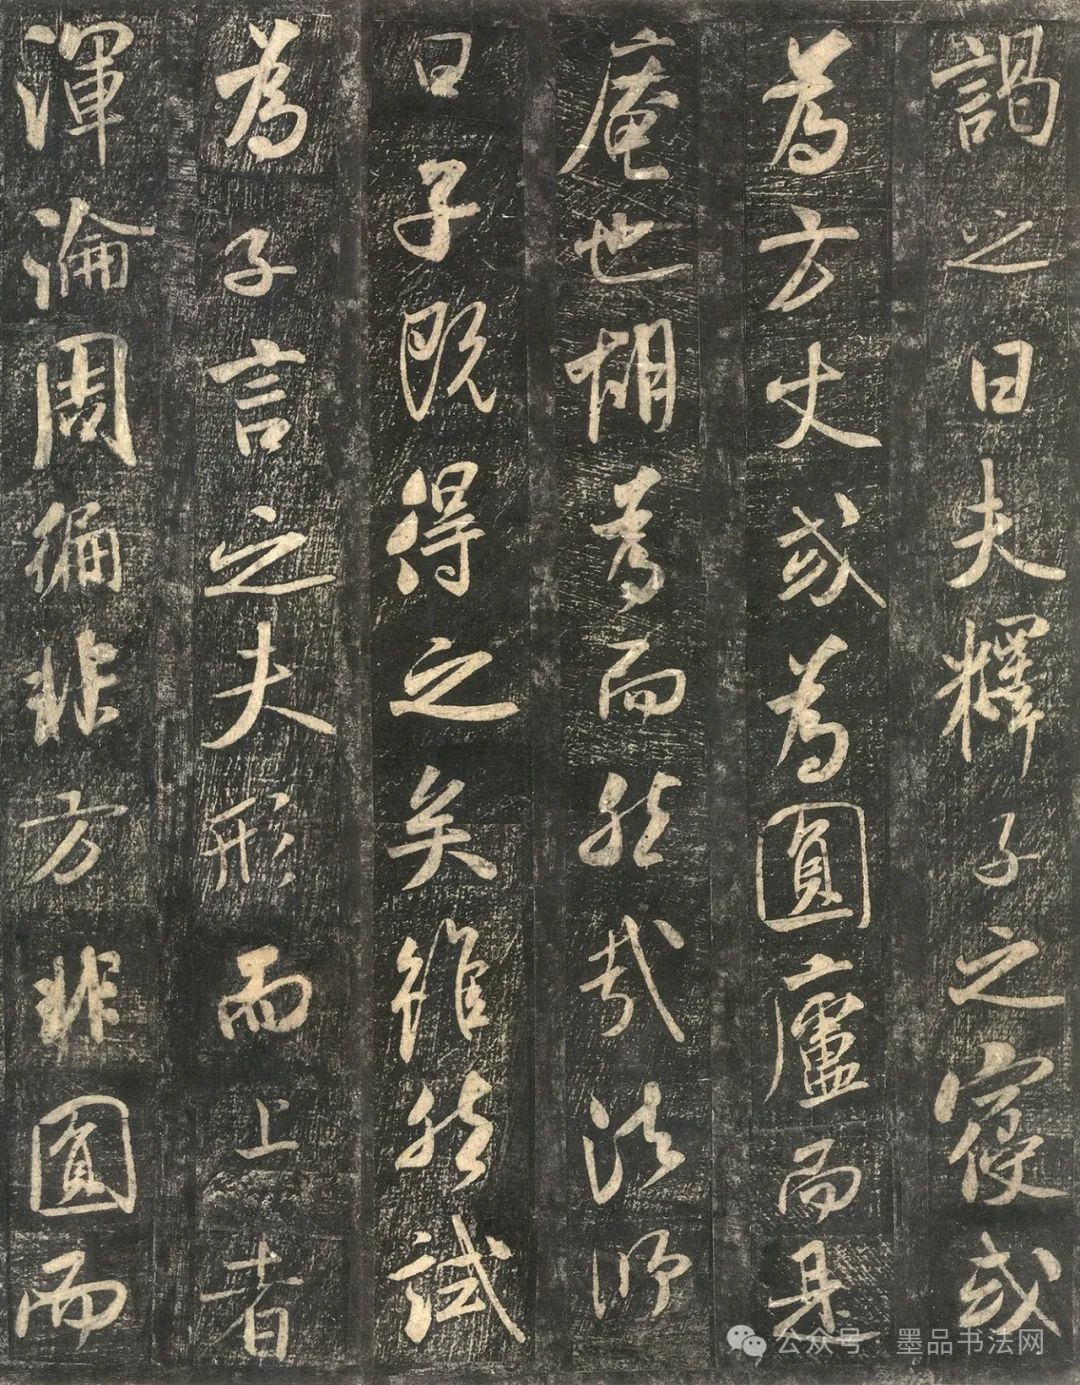 謁之曰夫釋子之寢或
為方丈或為圓廬而是
庵也胡為而然哉法師
曰子既得之矣雖然試
為子言之夫形而上者
渾淪周徧非方非圓而
公众号·墨品书法网